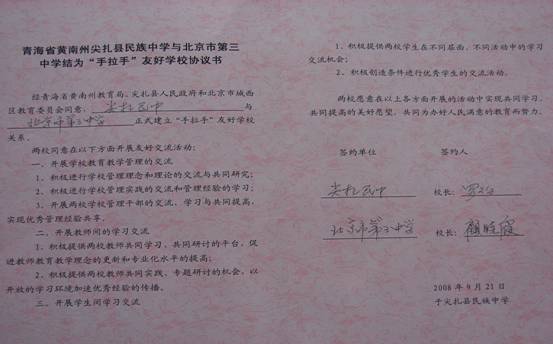 青海省黄南州尖扎县民族中学与北京市第三
中学结为“手拉手”友好学校协议书
经青海省黄南州教育局、尖扎县人民政府和北京市西城
区教育委员会同意，尖扎民中与
北京市第三中学正式建立“手拉手”友好学校
关系。
两校同意在以下方面开展友好交流活动：
一、开展学校教育教学管理的交流
1、积极进行学校管理理念和理论的交流与共同研究；
2、积极进行学校管理实践的交流和管理经验的学习；
3、开展两校学校管理干部的交流、学习与共同提高，
实现优秀管理经验共享。
二、开展教师间的学习交流
1、积极提供两校教师共同学习、共同研讨的平台，促
进教师教育教学理念的更新和专业化水平的提高；
2、积极提供两校教师共同实践、专题研讨的机会，以
开放的学习环境加速优秀经验的传播。
三、开展学生间学习交流
1、积极提供两校学生在不同层面、不同活动中的学习
交流机会；
2、积极创造条件进行优秀学生的交流活动。
两校愿意在以上各方面开展的活动中实现共同学习、
共同提高的美好愿望，共同为办好人民满意的教育而努力。
签约单位 签约人
尖扎民中 校长：
北京市第三中学 校长：
2008 年 9 月 21 日
于尖扎县民族中学